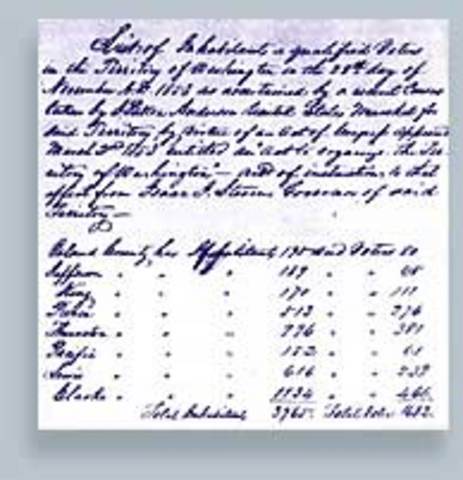 List of Inhabitants & qualified Voters
in the Territory of Washington on the 28th day of
November A.D. 1853 as ascertained by a recent Census
taken by J. Patton Anderson United States Marshal for
said Territory by virtue of an Act of Congress approved
March 2nd 1853 entitled "An Act to organize the Ter-
ritory of Washington" - and of instructions to that
effect from Isaac I. Stevens Governor of said
Territory -
Island County has Inhabitants 195 and Voters 80
Jefferson " " " 189 " " 68
King " " " 170 " " 111
Pierce " " " 513 " " 276
Thurston " " " 996 " " 381
Pacific " " " 152 " " 61
Lewis " " " 616 " " 239
Clarke " " " 1134 " " 466
Total Inhabitants 3965 Total Voters 1682